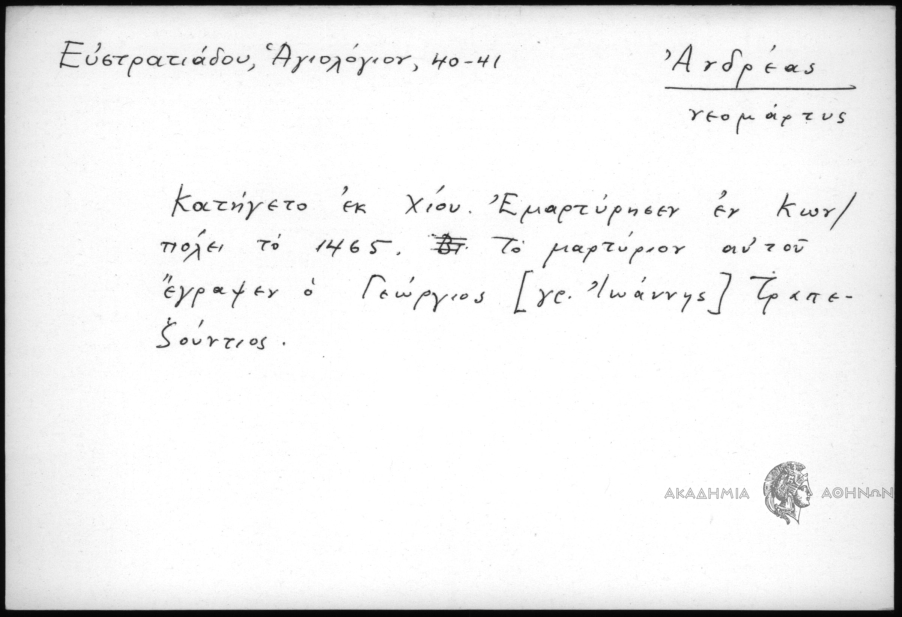 Εὐστρατιάδου, Ἁγιολόγιον, 40-41
Ἀνδρέας
νεομάρτυς
Κατήγετο ἐκ Χίου. Ἐμαρτύρησεν ἐν Κων/
πόλει τὸ 1465. Τὸ μαρτύριον αὐτοῦ
ἔγραψεν ὁ Γεώργιος [γρ. Ἰωάννης] Τραπε-
ζούντιος.
ΑΚΑΔΗΜΙΑ ΑΘΗΝΩΝ